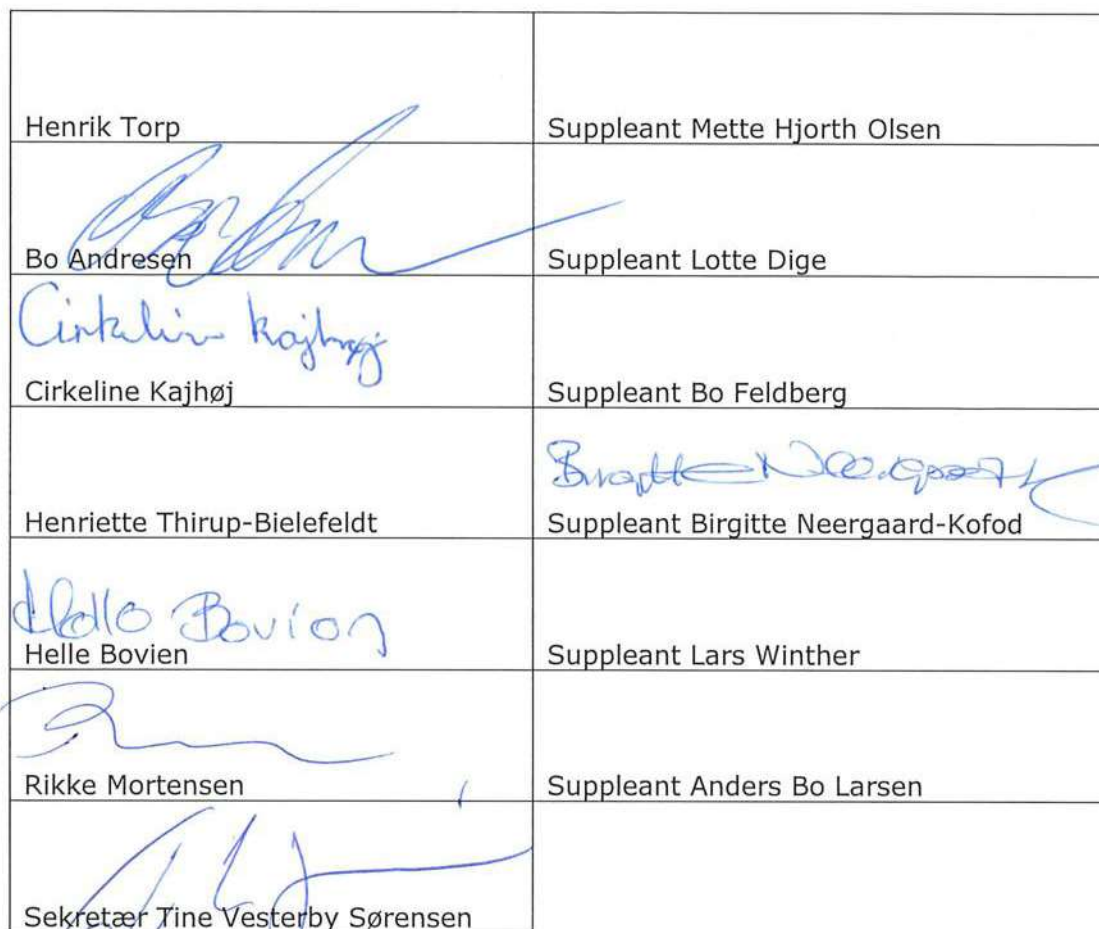 Henrik Torp
Suppleant Mette Hjorth Olsen
Bo Andresen
Suppleant Lotte Dige
Cirkeline Kajhøj
Cirkeline Kajhøj
Suppleant Bo Feldberg
Henriette Thirup-Bielefeldt
Suppleant Birgitte Neergaard-Kofod
Helle Bovien
Helle Bovien
Suppleant Lars Winther
Rikke Mortensen
Suppleant Anders Bo Larsen
Sekretær Tine Vesterby Sørensen